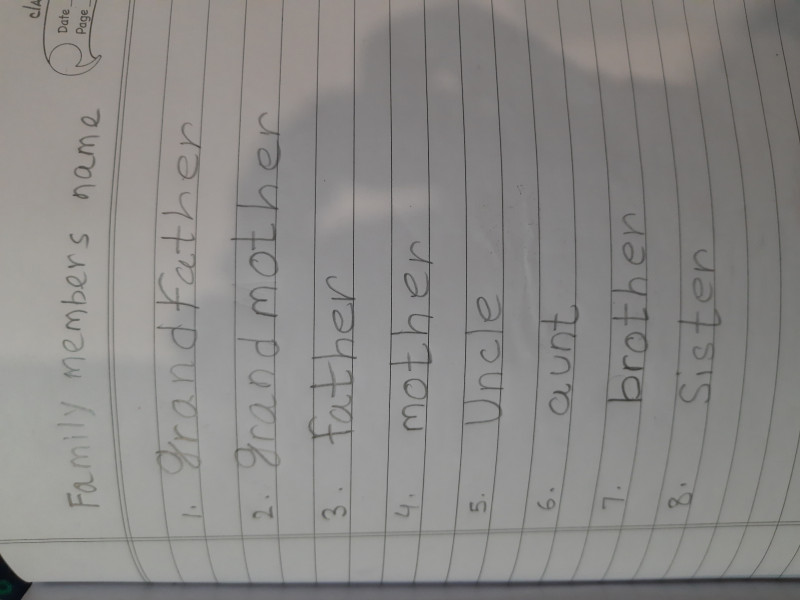 c/A
Date
Page
Family members name
1. grandfather
2. grandmother
3. father
4. mother
5. Uncle
6. aunt
7. brother
8. Sister